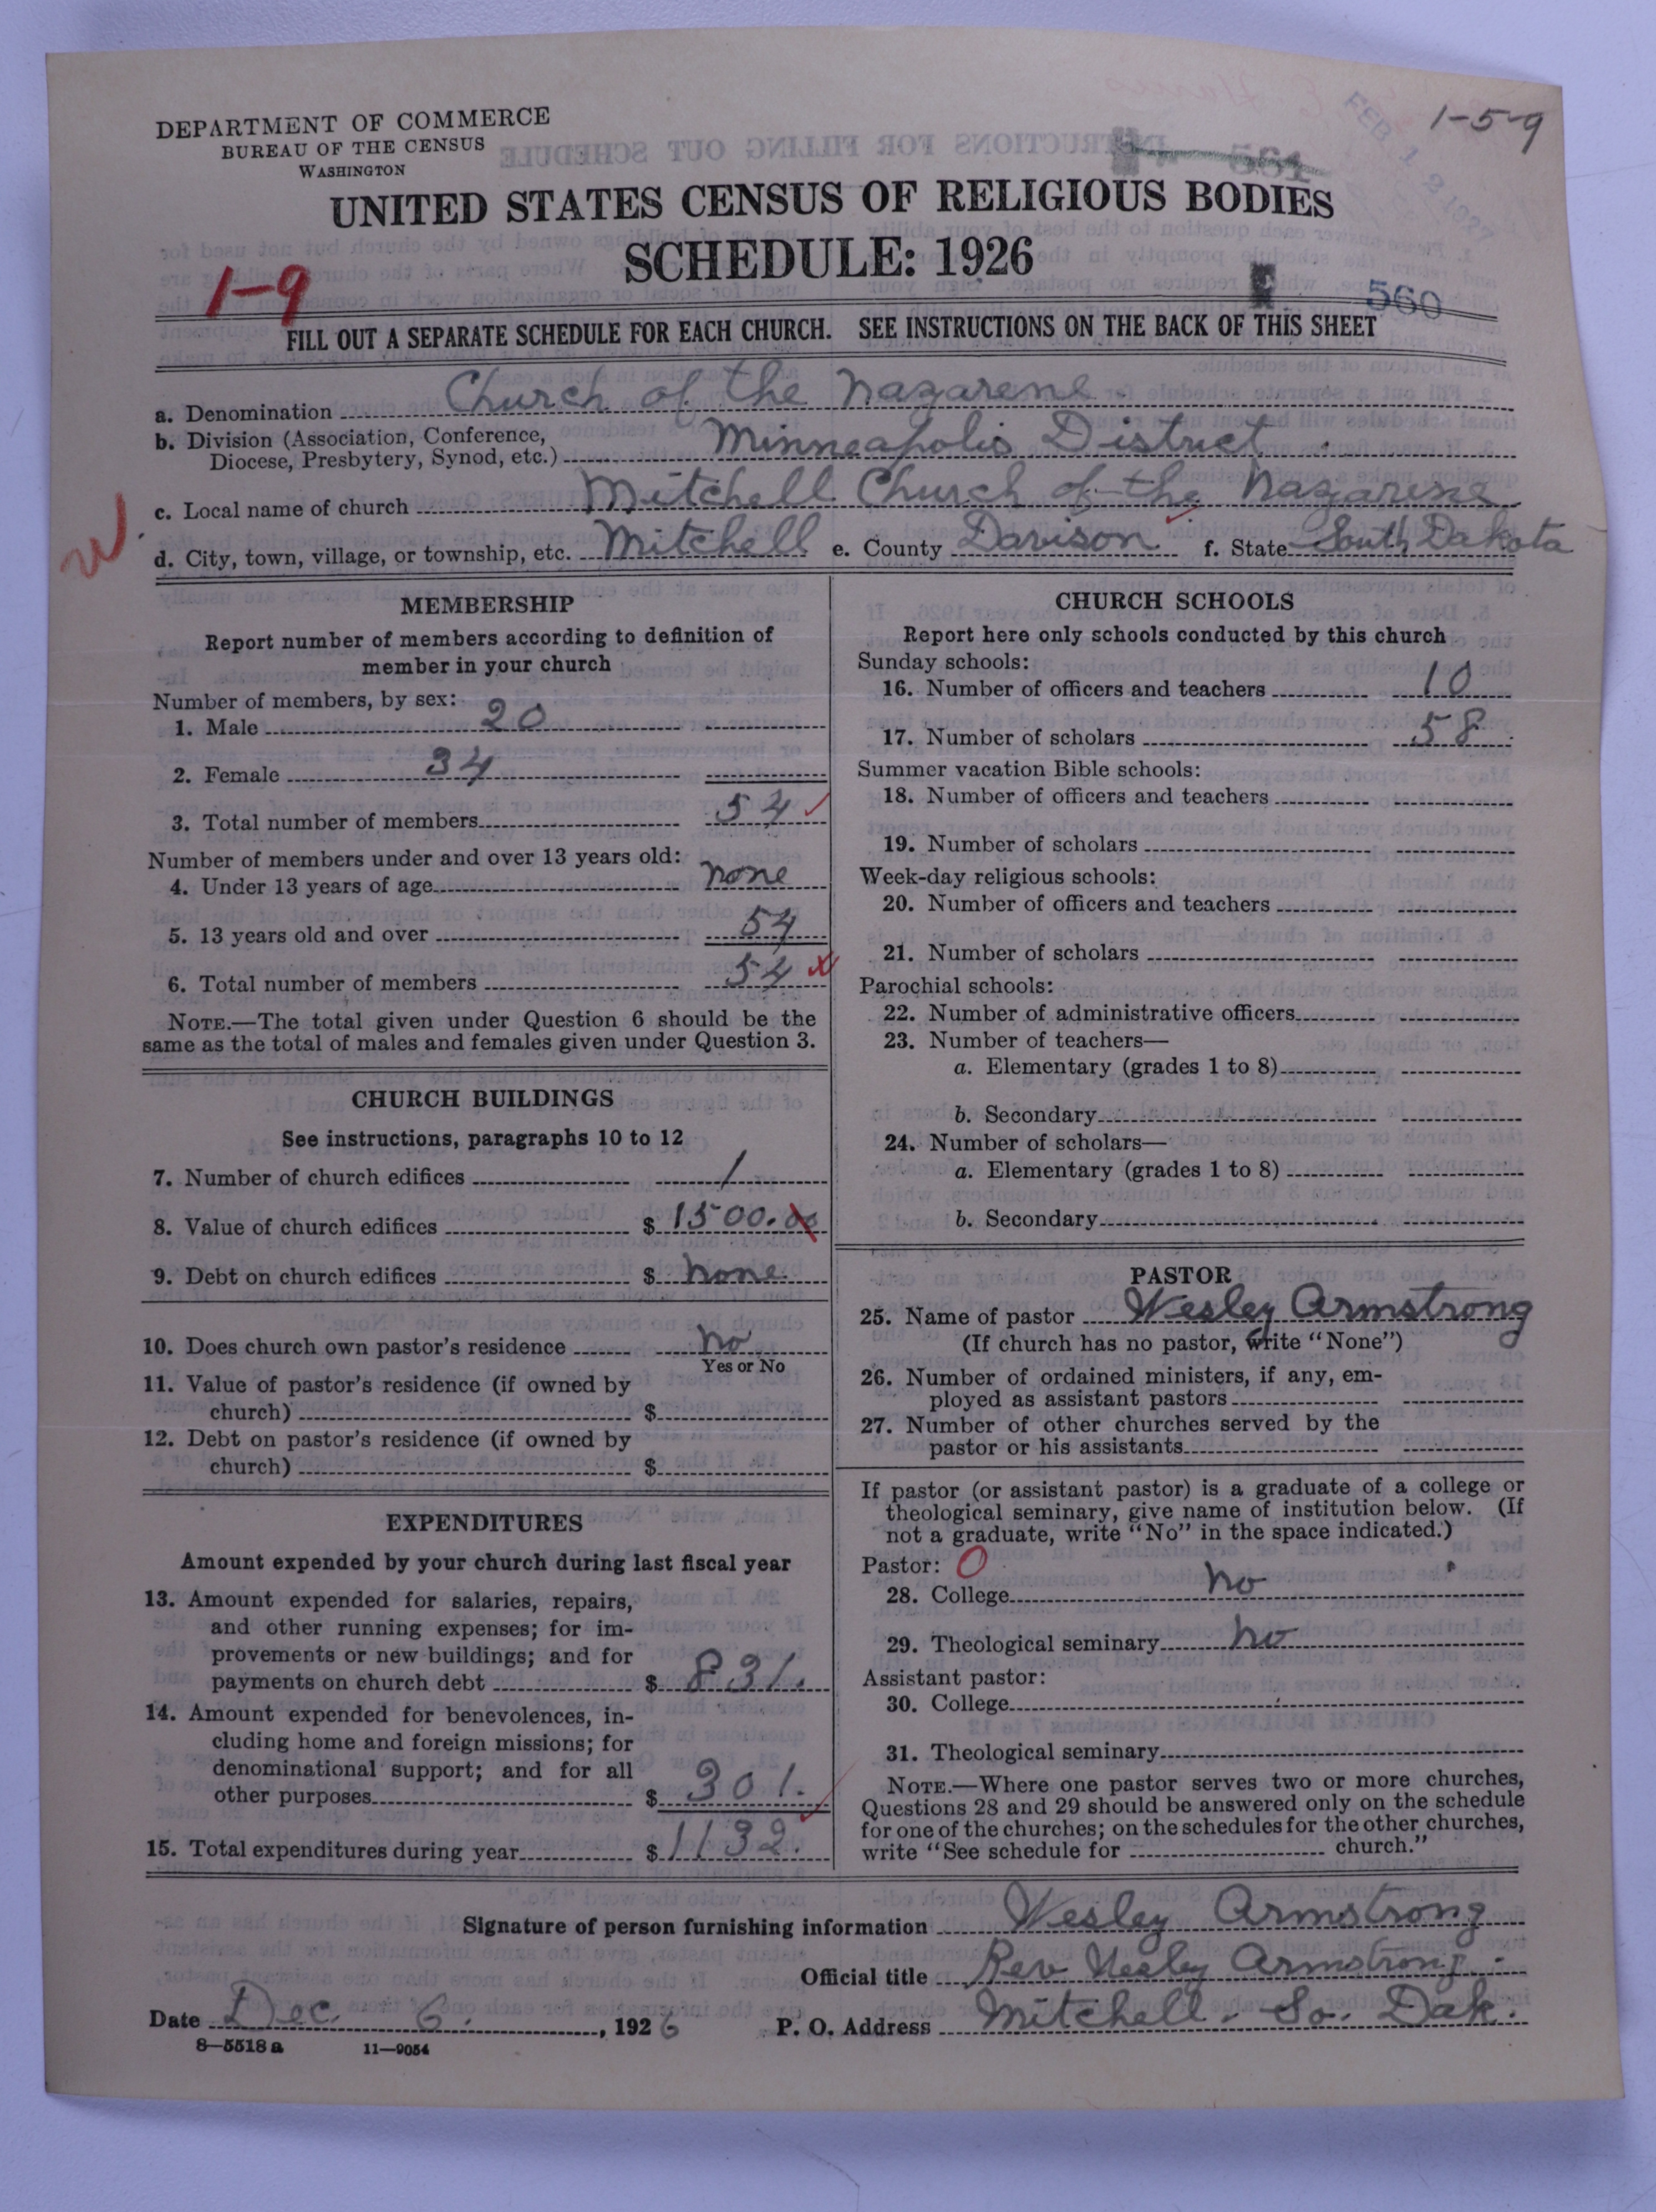 1-5-9
DEPARTMENT OF COMMERCE
BUREAU OF THE CENSUS
WASHINGTON
561
FEB 1 2 1927
UNITED STATES CENSUS OF RELIGIOUS BODIES
SCHEDULE: 1926
1-9
560
FILL OUT A SEPARATE SCHEDULE FOR EACH CHURCH. SEE INSTRUCTIONS ON THE BACK OF THIS SHEET
a. Denomination Church of the Nazarene
b. Division (Association, Conference, Diocese, Presbytery, Synod, etc.) Minneapolis District
c. Local name of church Mitchell Church of the Nazarene
W
d. City, town, village, or township, etc. Mitchell e. County Davison f. State South Dakota
MEMBERSHIP
Report number of members according to definition of
member in your church
Number of members, by sex:
1. Male 20
2. Female 34
3. Total number of members 54
Number of members under and over 13 years old:
4. Under 13 years of age none
5. 13 years old and over 54
6. Total number of members 54
NOTE.—The total given under Question 6 should be the
same as the total of males and females given under Question 3.
CHURCH BUILDINGS
See instructions, paragraphs 10 to 12
7. Number of church edifices 1
8. Value of church edifices $ 1500.00
9. Debt on church edifices $ none
10. Does church own pastor's residence no
Yes or No
11. Value of pastor's residence (if owned by
church) $
12. Debt on pastor's residence (if owned by
church) $
EXPENDITURES
Amount expended by your church during last fiscal year
13. Amount expended for salaries, repairs,
and other running expenses; for im-
provements or new buildings; and for
payments on church debt $ 831.
14. Amount expended for benevolences, in-
cluding home and foreign missions; for
denominational support; and for all
other purposes $ 301.
15. Total expenditures during year $ 1132.
CHURCH SCHOOLS
Report here only schools conducted by this church
Sunday schools:
16. Number of officers and teachers 10
17. Number of scholars 58
Summer vacation Bible schools:
18. Number of officers and teachers
19. Number of scholars
Week-day religious schools:
20. Number of officers and teachers
21. Number of scholars
Parochial schools:
22. Number of administrative officers
23. Number of teachers—
a. Elementary (grades 1 to 8)
b. Secondary
24. Number of scholars—
a. Elementary (grades 1 to 8)
b. Secondary
PASTOR
25. Name of pastor Wesley Armstrong
(If church has no pastor, write "None")
26. Number of ordained ministers, if any, em-
ployed as assistant pastors
27. Number of other churches served by the
pastor or his assistants
If pastor (or assistant pastor) is a graduate of a college or
theological seminary, give name of institution below. (If
not a graduate, write "No" in the space indicated.)
Pastor: O
28. College no
29. Theological seminary no
Assistant pastor:
30. College
31. Theological seminary
NOTE.—Where one pastor serves two or more churches,
Questions 28 and 29 should be answered only on the schedule
for one of the churches; on the schedules for the other churches,
write "See schedule for church."
Signature of person furnishing information Wesley Armstrong
Official title Rev Wesley Armstrong.
Date Dec. 6., 1926 P. O. Address Mitchell. So. Dak.
8—5518 a 11—9054